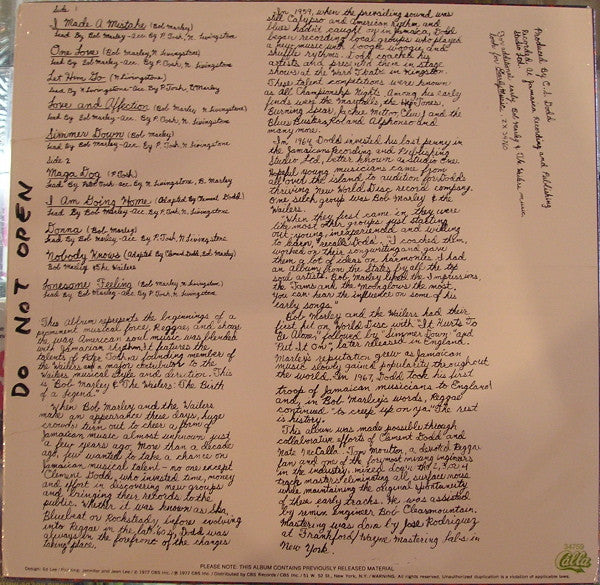 Side 1
I Made A Mistake (Bob Marley)
Lead By Bob Marley-Acc. By P. Tosh, N. Livingstone
One Love (Bob Marley, N. Livingstone)
Lead By Bob Marley-Acc. By P. Tosh, N. Livingstone
Let Him Go (N. Livingstone)
Lead By N. Livingstone-Acc. By P. Tosh, B. Marley
Love and Affection (Bob Marley, N. Livingstone)
Lead By Bob Marley-Acc. By P. Tosh, N. Livingstone
Simmer Down (Bob Marley)
Lead By Bob Marley-Acc. By P. Tosh, N. Livingstone
Side 2
Maga Dog (P. Tosh)
Lead By Peter Tosh-Acc. By N. Livingstone, B. Marley
I Am Going Home (Adapted By Clement Dodd)
Lead By Bob Marley-Acc. By P. Tosh, N. Livingstone
Donna (Bob Marley)
Lead By Bob Marley-Acc. By P. Tosh, N. Livingstone
Nobody Knows (Adapted By Clement Dodd, Bob Marley)
Bob Marley & The Wailers
Lonesome Feeling (Bob Marley, N. Livingstone)
Lead By Bob Marley-Acc. By P. Tosh, N. Livingstone
This album represents the beginnings of a
prominent musical force, Reggae, and shows
the way American soul music was blended
with Jamaican rhythm. It features the
talents of Peter Tosh, a founding member of
the Wailers and a major contributor to the
Wailers musical style and direction. This
is "Bob Marley & The Wailers: The Birth
of a Legend."
When Bob Marley and the Wailers
make an appearance these days, huge
crowds turn out to cheer a form of
Jamaican music almost unknown just
a few years ago. More than a decade
ago few wanted to take a chance on
Jamaican musical talent - no one except
Clement Dodd, who invested time, money
and effort in discovering new groups
and bringing their records to the
public. Whether it was known as Ska,
Bluebeat or Rocksteady before evolving
into Reggae in the late 60's, Dodd was
always in the forefront of the changes
taking place.
In 1959, when the prevailing sound was
still Calypso and American rhythm and
blues hadn't caught on in Jamaica, Dodd
began recording local groups who played
a new music with boogie woogie and
shuffle rhythms. Dodd coached his
artists and presented them in stage
shows at the Ward Theatre in Kingston.
These talent competitions were known
as All Championship Nights. Among his early
finds were the Maytalls, the Hep Tones,
Burning Spear, Jackie Mittoo, Clue J and the
Blues Busters, Roland Alphonso and
many more.
In 1964, Dodd invested his last penny in
the Jamaican Recording and Publishing
Studio Ltd., better known as Studio One.
Hopeful young musicians came from
all over the island to audition for Dodd's
thriving New World Disc record company.
One such group was Bob Marley & the
Wailers.
"When they first came in, they were
like most other groups just starting
out - young, inexperienced and willing
to learn," recalls Dodd. "I coached them,
worked on their songwriting and gave
them a lot of ideas on harmonies. I had
an album from the States by all the top
soul artists. Bob Marley liked the Impressions,
the Tams and the Moonglows the most.
You can hear the influence on some of his
early songs."
Bob Marley and the Wailers had their
first hit on World Disc with "It Hurts To
Be Alone," followed by "Simmer Down" and
"Put It On", later released in England.
Marley's reputation grew as Jamaican
music slowly gained popularity throughout
the world. In 1967, Dodd took his first
troop of Jamaican musicians to England
and, in Bob Marley's words, Reggae
continued "to creep up on ya." The rest
is history.
This album was made possible through
collaborative efforts of Clement Dodd and
Nate McCalla. Tom Moulton, a devoted Reggae
fan and one of the foremost mixing engineers
in the industry, mixed down the 1, 3, or 4
track masters eliminating all surface noise
while maintaining the original spontaneity
of these early tracks. He was assisted
by remix Engineer Bob Clearmountain.
Mastering was done by Jose Rodriguez
at Frankford/Wayne Mastering Labs in
New York.
Produced By C.S. Dodd
Recorded At Jamaican Recording and Publishing
Studio Ltd.
For additional early Bob Marley & The Wailers music
look for Early Music, ZX 34760
DO NOT OPEN
PLEASE NOTE: THIS ALBUM CONTAINS PREVIOUSLY RELEASED MATERIAL
34759
Calla